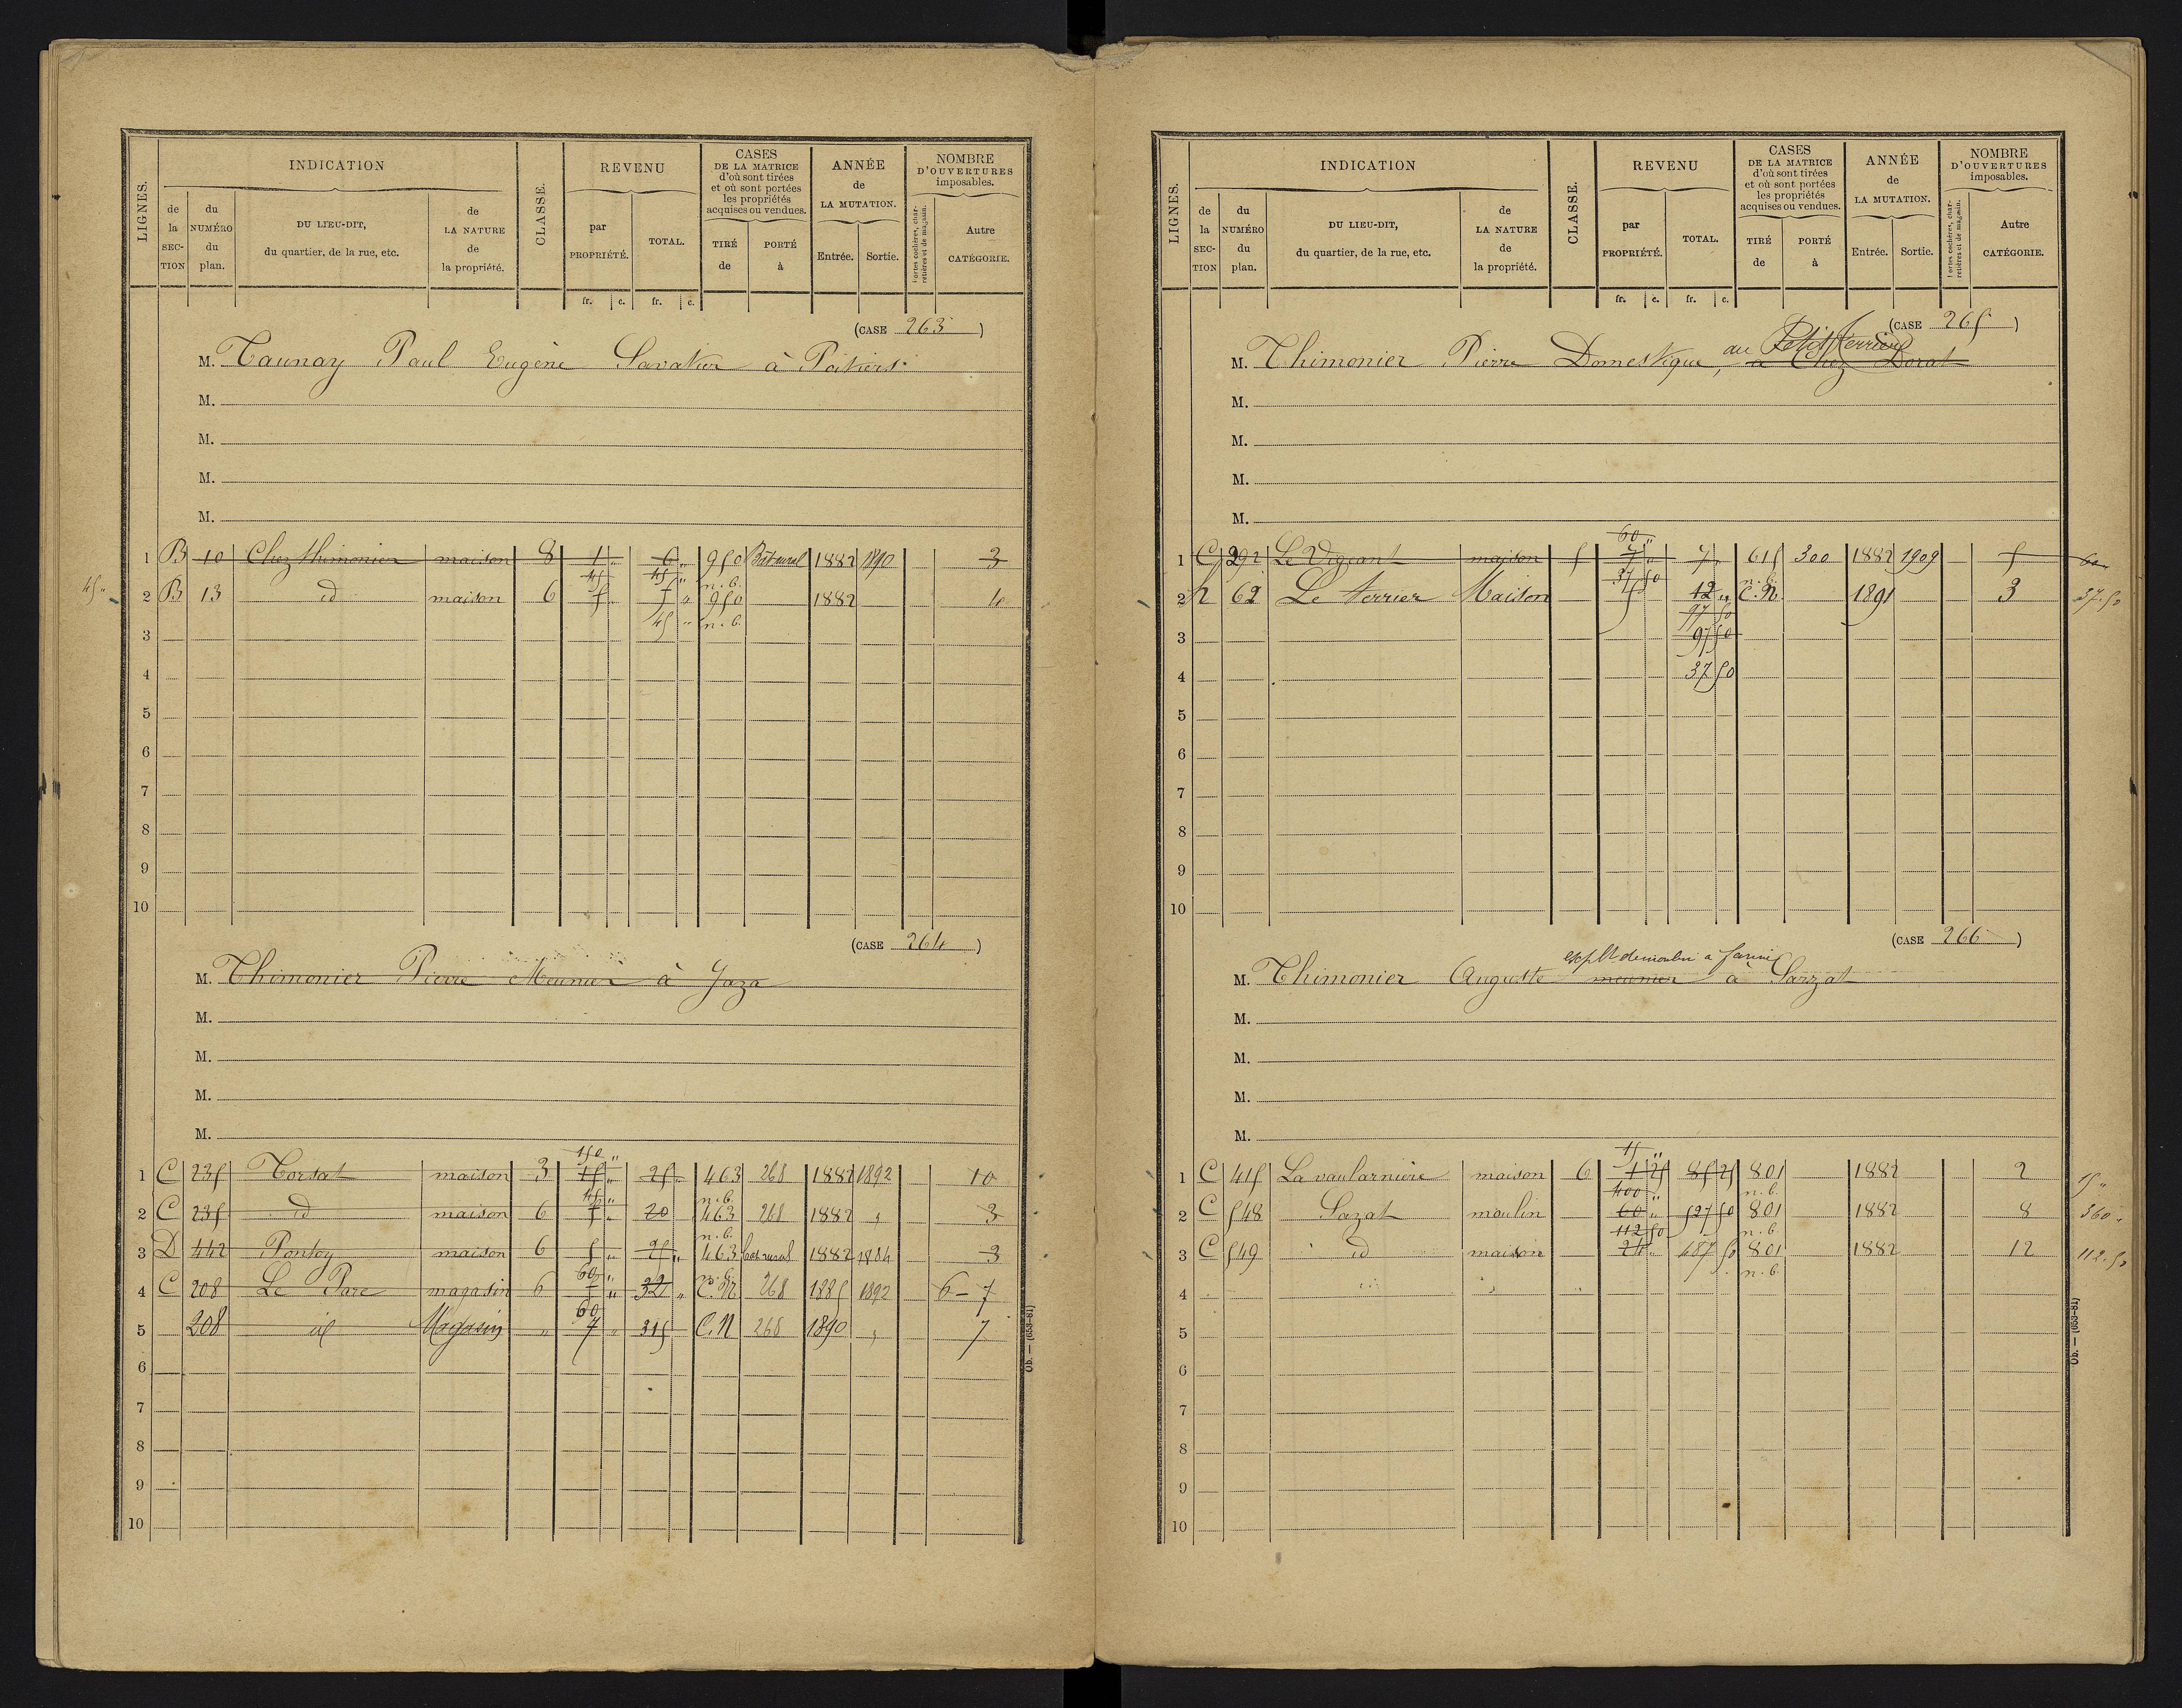 LIGNES.
INDICATION
de la SECTION
du NUMÉRO du plan.
DU LIEU-DIT, du quartier, de la rue, etc.
de LA NATURE de la propriété.
CLASSE.
REVENU
par PROPRIÉTÉ.
TOTAL.
CASES DE LA MATRICE d'où sont tirées et où sont portées les propriétés acquises ou vendues.
TIRÉ de
PORTÉ à
ANNÉE de LA MUTATION.
Entrée.
Sortie.
NOMBRE D'OUVERTURES imposables.
Portes cochères, charretières et de magasin.
Autre CATÉGORIE.
fr. c. fr. c.
(CASE 263)
M. Taunay Paul Eugène Savatier à Poitiers
M.
M.
M.
M.
1 B 10 Chez thimonier maison 8 1 " 6 " 950 Bât rural 1882 1890 3
45 45 " n.b.
45 " 2 B 13 id maison 6 5 " 5 " 950 1882 4
45 " n.b.
3
4
5
6
7
8
9
10
(CASE 264)
M. Thimonier Pierre Meunier à Jaza
M.
M.
M.
M.
150 "
1 C 235 Torsat maison 3 15 " 25 " 463 268 1882 1892 10
45 " n.b.
2 C 235 id maison 6 5 " 20 463 268 1882 " 3
n.b.
3 D 442 Pontoy maison 6 5 " 25 " 463 bât rural 1882 1884 3
60 " n.b.
4 C 208 Le Parc magasin 6 7 " 32 " C.N 268 1885 1892 6 - 7
60
5 208 id Magasin " 7 " 315 C.N 268 1890 " 7
6
7
8
9
10
Ob. — (653-81)
LIGNES.
INDICATION
de la SECTION
du NUMÉRO du plan.
DU LIEU-DIT, du quartier, de la rue, etc.
de LA NATURE de la propriété.
CLASSE.
REVENU
par PROPRIÉTÉ.
TOTAL.
CASES DE LA MATRICE d'où sont tirées et où sont portées les propriétés acquises ou vendues.
TIRÉ de
PORTÉ à
ANNÉE de LA MUTATION.
Entrée.
Sortie.
NOMBRE D'OUVERTURES imposables.
Portes cochères, charretières et de magasin.
Autre CATÉGORIE.
fr. c. fr. c.
(CASE 265)
au Petit Terrier
M. Thimonier Pierre Domestique, à Chez Dorat
M.
M.
M.
M.
60 "
1 C 292 Le Vigeant maison 5 7 " 7 " 615 300 1882 1909 5 60 "
37 50 n.b.
2 h 62 Le terrier Maison 5 12 " C.N. 1891 3 37.50
97 50
3 97 50
4 37 50
5
6
7
8
9
10
(CASE 266)
explt de moulin à farine
M. Thimonier Auguste meunier à Sazat
M.
M.
M.
M.
15 "
1 C 415 La vaularnière maison 6 1 25 85 25 801 1882 2 15 "
400 " n.b.
2 C 548 Sazat moulin 60 " 527 50 801 1882 8 360 "
112 50 n.b
3 C 549 id maison 24 " 487 50 801 1882 12 112.50
n.b
4
5
6
7
8
9
10
Ob. — (653-81)